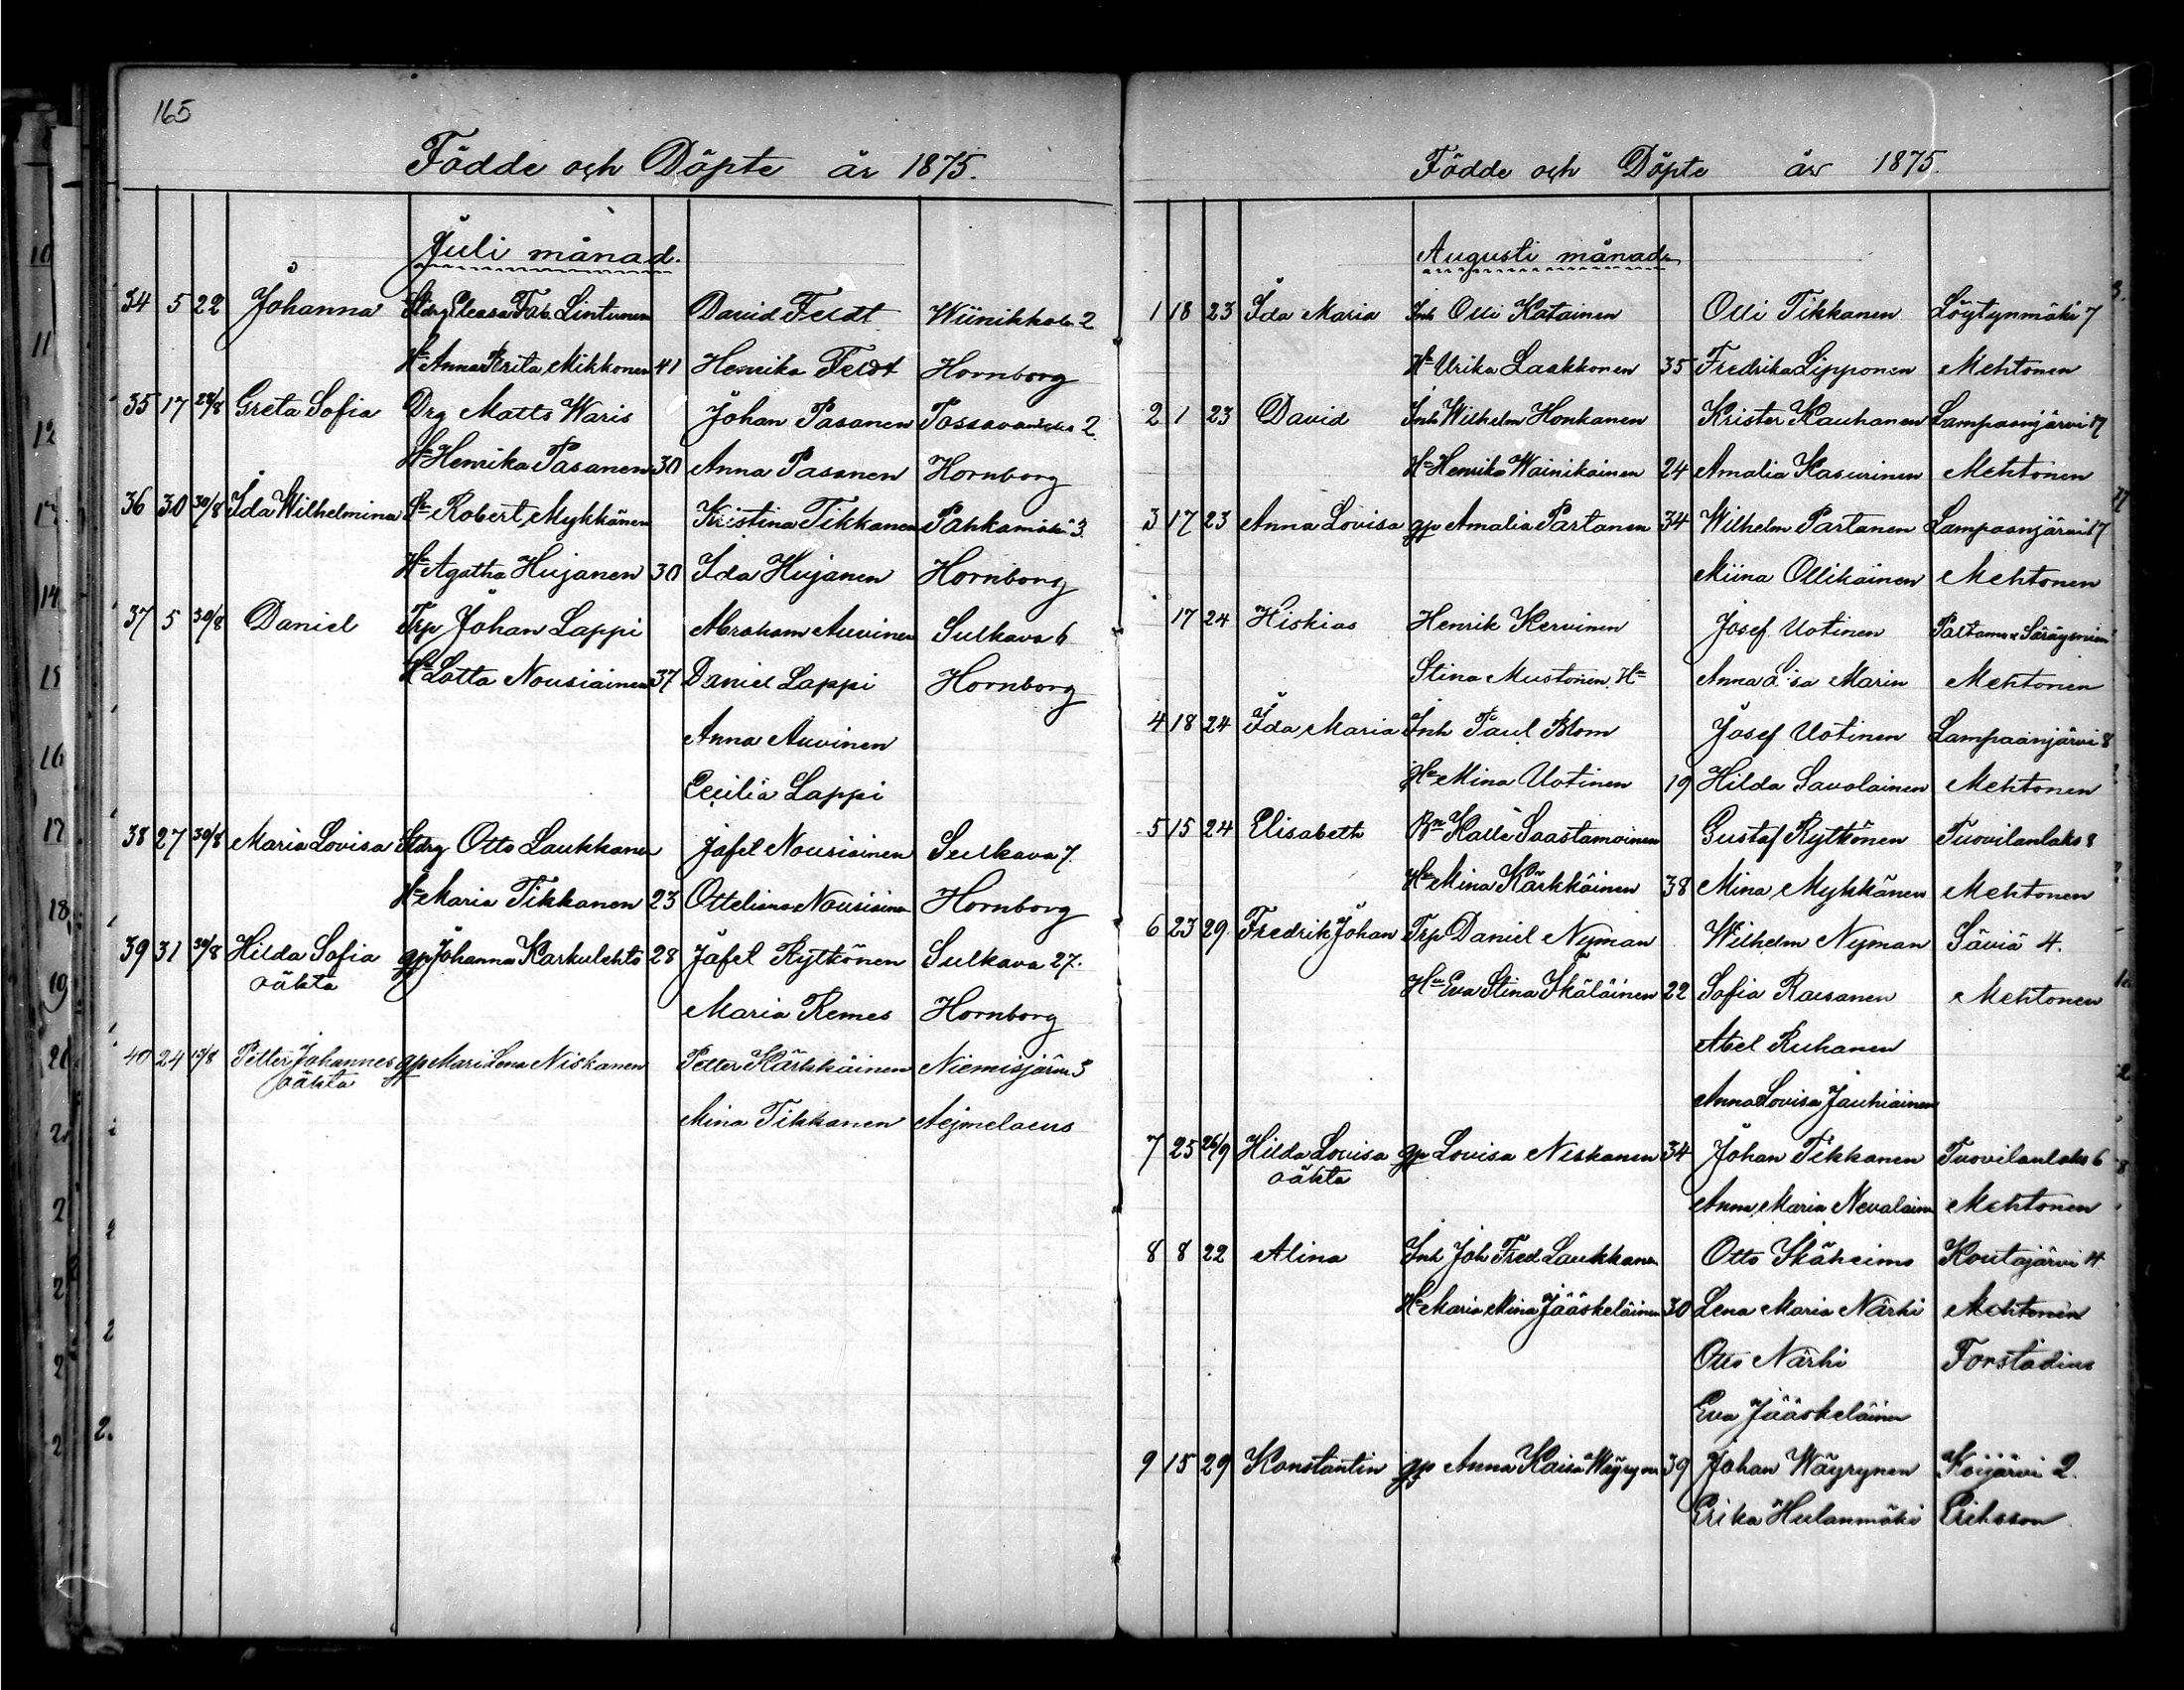 165
Födde och Döpte år 1875.
Juli månad.
34 5 22 Johanna Stdrg Eleasa Fab. Lintunen David Feldt Wiinikkala 2
Hu Anna Brita Mikkonen 41 Henrika Feldt Hornborg
35 17 22/8 Greta Sofia Drg Matts Waris Johan Pasanen Tossavan 2
Hu Henrika Pasanen 30 Anna Pasanen Hornborg
36 30 30/8 Ida Wilhelmina Robert Mykkänen Kristina Tikkanen Pahkamäki 3
Hu Agatha Hujanen 30 Ida Hujanen Hornborg
37 5 30/8 Daniel Trp Johan Lappi Abraham Auvinen Sulkava 6
Hu Lotta Nousiainen 37 Daniel Lappi Hornborg
Anna Auvinen
Cecilia Lappi
38 27 30/8 Maria Lovisa Stdrg Otto Laukkanen Jafet Nousiainen Sulkava 7.
Hu Maria Tikkanen 23 Otteliana Nousiainen Hornborg
39 31 30/8 Hilda Sofia gp Johanna Karkulehto 28 Jafet Rytkönen Sulkava 27.
oäkta
Maria Remes Hornborg
40 24 15/8 Petter Johannes gp Mari Lena Niskanen Petter Kärkkäinen Niemisjärvi 3
oäkta
Mina Tikkanen Aejmelaeus
Födde och Döpte år 1875.
Augusti månad.
1 18 23 Ida Maria Inh Olli Katainen Olli Tikkanen Löytynmäki 7
Hu Ulrika Laakkonen 35 Fredrika Lipponen Mehtonen
2 1 23 David Inh Wilhelm Honkanen Krister Kauhanen Lampaanjärvi 17
Hu Henrika Wainikainen 24 Amalia Kasurinen Mehtonen
3 17 23 Anna Lovisa gp Amalia Partanen 34 Wilhelm Partanen Lampaanjärvi 17
Miina Ollikainen Mehtonen
17 24 Hiskias Henrik Kervinen Josef Uotinen Paltamo Säräysniemi
Stina Mustonen Hu Anna Lisa Marin Mehtonen
4 18 24 Ida Maria Inh Paul Blom Josef Uotinen Lampaanjärvi 8
Hu Mina Uotinen 19 Hilda Savolainen Mehtonen
5 15 24 Elisabeth Bn Kalle Saastamoinen Gustaf Rytkönen Tuovilanlaks 8
Hu Mina Kärkkäinen 38 Mina Mykkänen Mehtonen
6 23 29 Fredrik Johan Trp Daniel Nyman Wilhelm Nyman Säviä 4.
Hu Eva Stina Ikäläinen 22 Sofia Raesanen Mehtonen
Abel Ruhanen
Anna Lovisa Jauhiainen
7 25 26/9 Hilda Lovisa gp Lovisa Niskanen 34 Johan Tikkanen Tuovilanlaks 6
oäkta
Anna Maria Nevalainen Mehtonen
8 8 22 Alina Inh Joh Fred Laukkanen Otto Ikäheimo Koutajärvi 4
Hu Maria Mina Jääskeläinen 30 Lena Maria Närhi Mehtonen
Otto Närhi Forstadius
Eva Jääskeläinen
9 15 29 Konstantin gp Anna Kaisa Wäyrynen 39 Johan Wäyrynen Koijärvi 2.
Erika Hulanmäki Eriksson